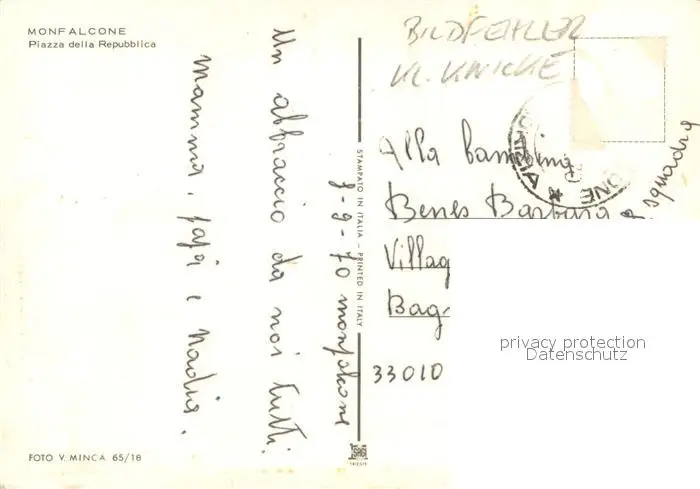 MONFALCONE
Piazza della Repubblica
BILDFEHLER
KL. KNICKE
Un abbraccio da noi tutti.
mamma, papà e Nadia.
9-9-70 monfalcone
STAMPATO IN ITALIA - PRINTED IN ITALY
Alla bambina
Benes Barbara squadra
Villag
Bag
33010
privacy protection
Datenschutz
FOTO V. MINCA 65/18
TRIESTE